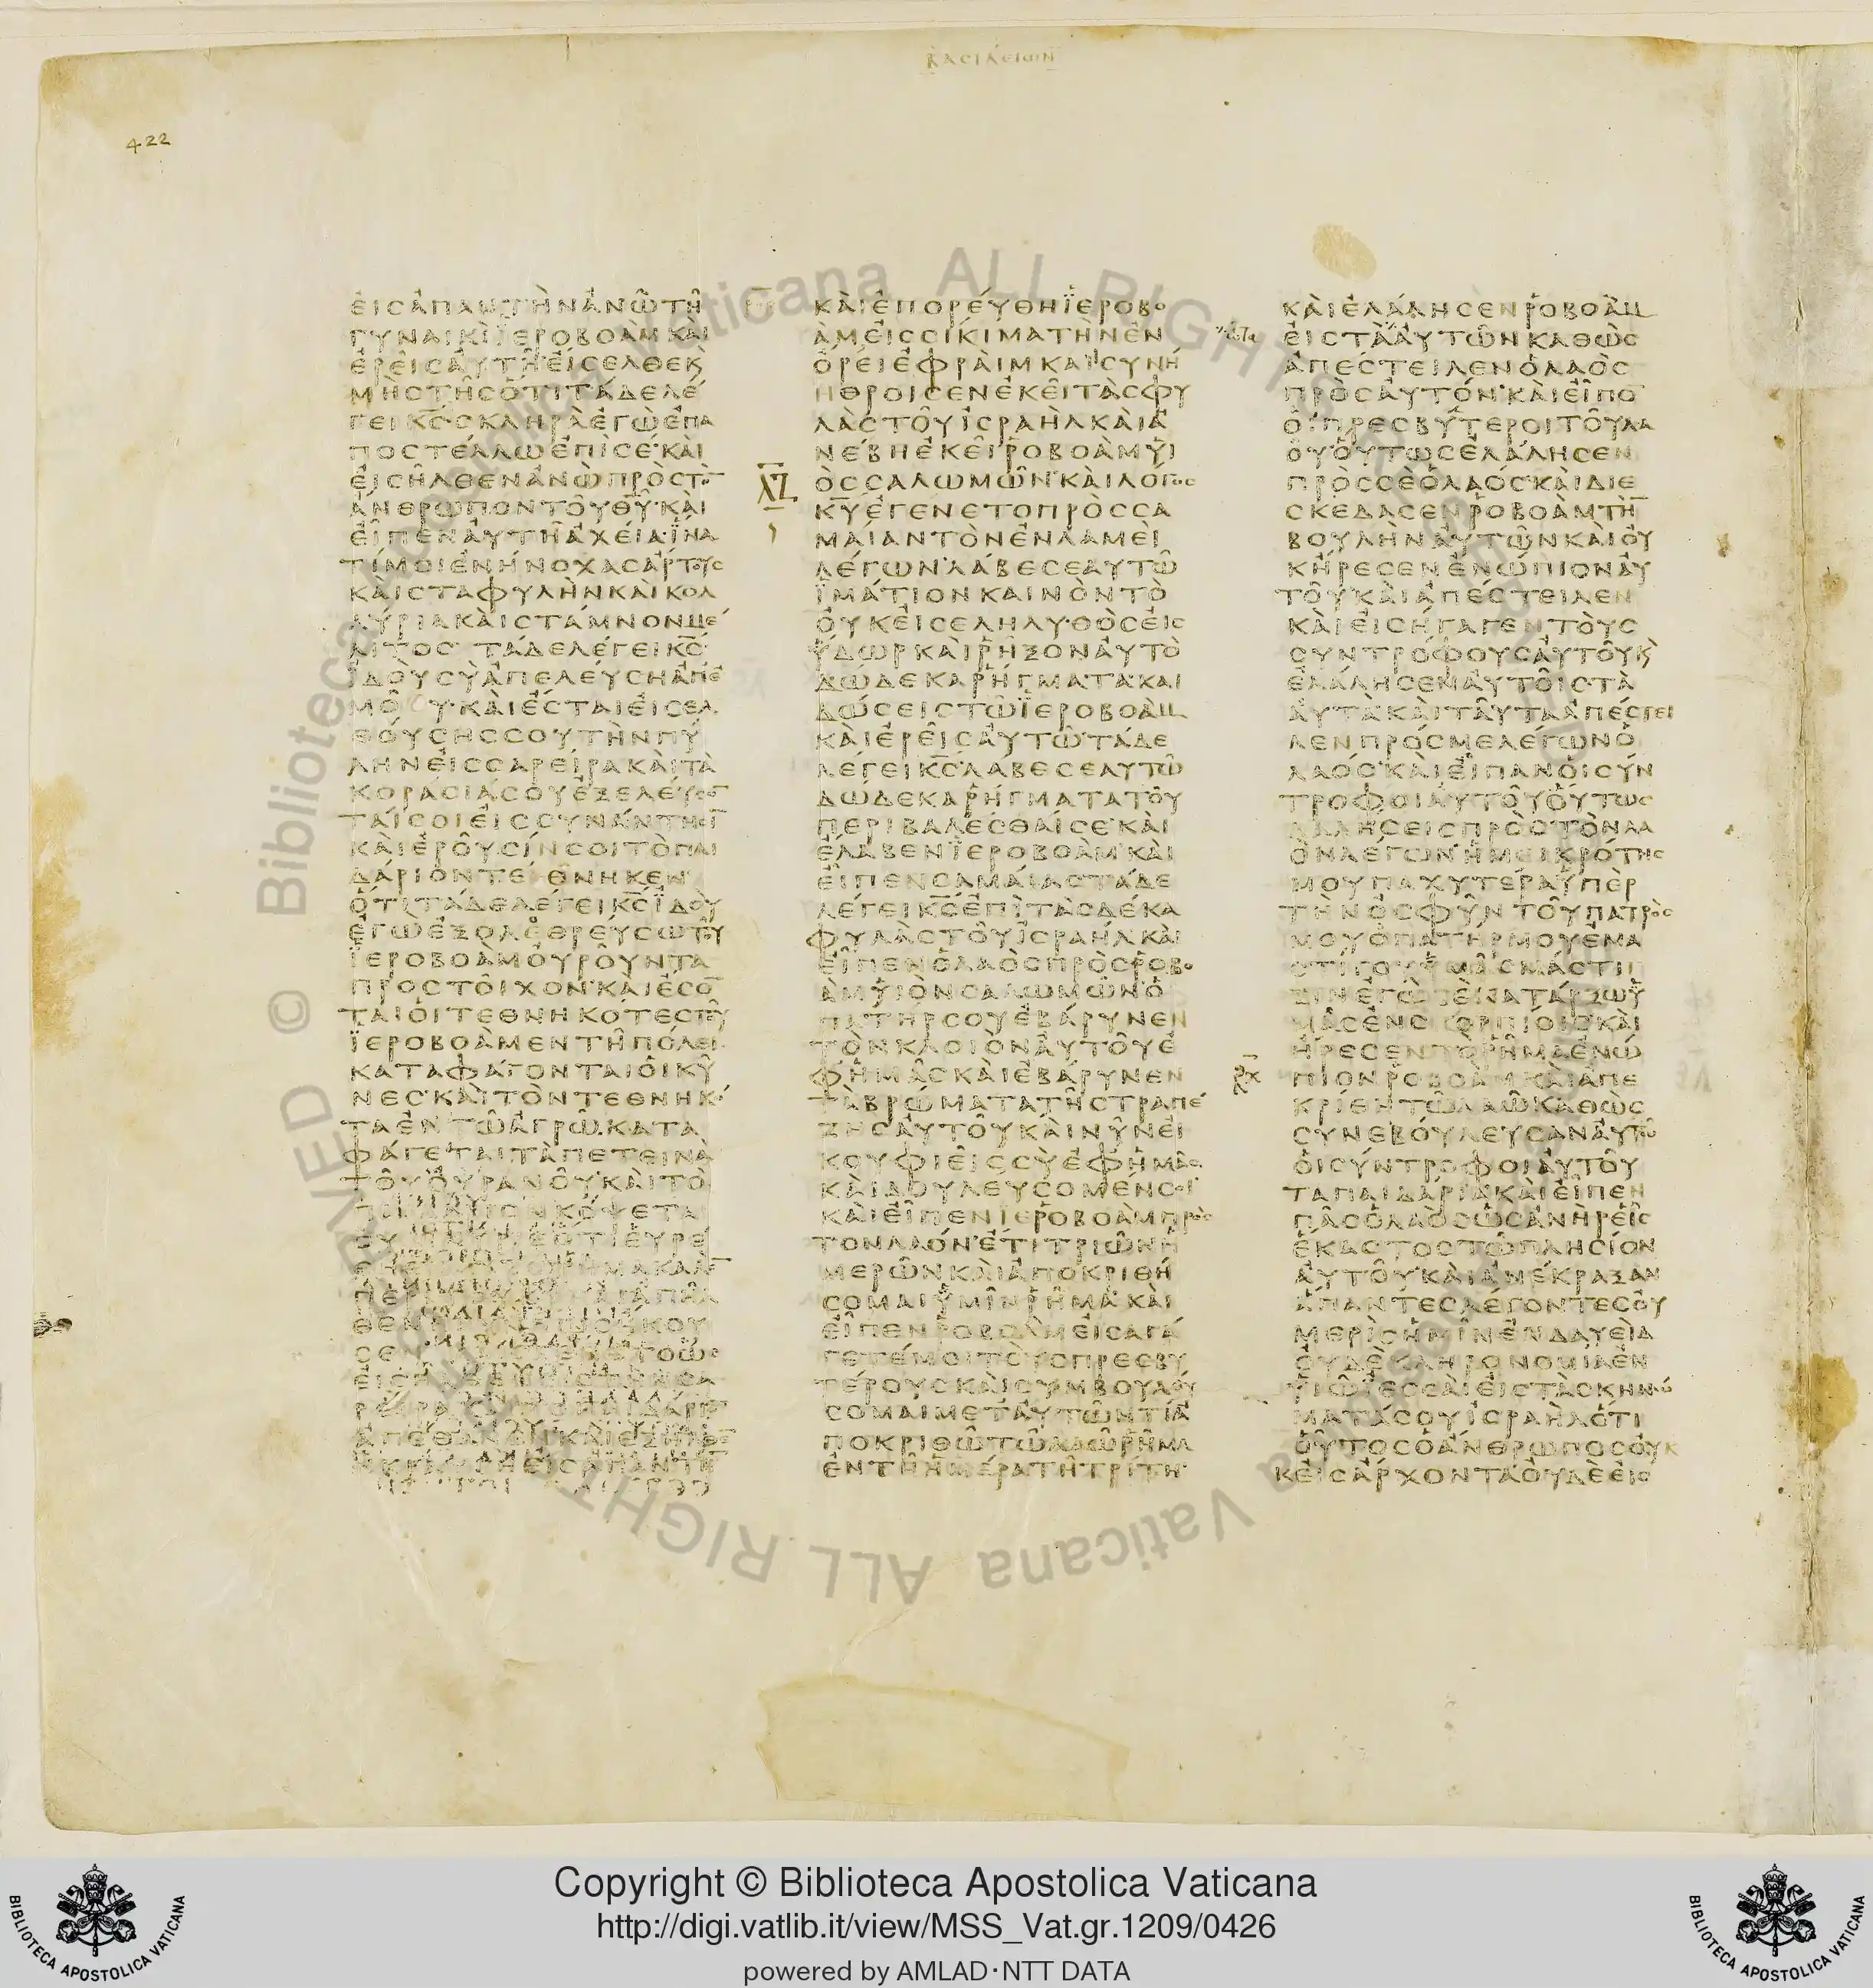 ΒΑCΙΛΕΙΩΝ
422
ΕΙCΑΠΑΝΤΗΝΑΝΩΤΗ
ΓΥΝΑΙΚΙΙΕΡΟΒΟΑΜΚΑΙ
ΕΡΕΙCΑΥΤΗΕΙCΕΛΘΕΚ
ΜΗCΤΗCΟΤΙΤΑΔΕΛΕ
ΓΕΙΚCCΚΛΗΡΑΕΓΩΕΠΑ
ΠΟCΤΕΛΛΩΕΠΙCΕΚΑΙ
ΕΙCΗΛΘΕΝΑΝΩΠΡΟCΤΟ
ΑΝΘΡΩΠΟΝΤΟΥΘΥΚΑΙ
ΕΙΠΕΝΑΥΤΗΑΧΕΙΑΙΝΑ
ΤΙΜΟΙΕΝΗΝΟΧΑCΑΡΤΟΥC
ΚΑΙCΤΑΦΥΛΗΝΚΑΙΚΟΛ
ΛΥΡΙΑΚΑΙCΤΑΜΝΟΝΜΕ
ΛΙΤΟC ΤΑΔΕΛΕΓΕΙΚC
ΙΔΟΥCΥΑΠΕΛΕΥCΗΑΠΕ
ΜΟΥΚΑΙΕCΤΑΙΕΙCΕΛ
ΘΟΥCΗCCΟΥΤΗΝΠΥ
ΛΗΝΕΙCCΑΡΕΙΡΑΚΑΙΤΑ
ΚΟΡΑCΙΑCΟΥΕΞΕΛΕΥCΟ
ΤΑΙCΟΙΕΙCCΥΝΑΝΤΗCΙ
ΚΑΙΕΡΟΥCΙΝCΟΙΤΟΠΑΙ
ΔΑΡΙΟΝΤΕΘΝΗΚΕΝ
ΟΤΙΤΑΔΕΛΕΓΕΙΚCΙΔΟΥ
ΕΓΩΕΞΟΛΕΘΡΕΥCΩΤΟΥ
ΙΕΡΟΒΟΑΜΟΥΡΟΥΝΤΑ
ΠΡΟCΤΟΙΧΟΝΚΑΙΕCΟ
ΤΑΙΟΙΤΕΘΝΗΚΟΤΕCΤΟΥ
ΙΕΡΟΒΟΑΜΕΝΤΗΠΟΛΕΙ
ΚΑΤΑΦΑΓΟΝΤΑΙΟΙΚΥ
ΝΕCΚΑΙΤΟΝΤΕΘΝΗΚΟ
ΤΑΕΝΤΩΑΓΡΩΚΑΤΑ
ΦΑΓΕΤΑΙΤΑΠΕΤΕΙΝΑ
ΤΟΥΟΥΡΑΝΟΥΚΑΙΤΟ
ΚΑΙΕΠΟΡΕΥΘΗΙΕΡΟΒΟ
ΑΜΕΙCCΙΚΙΜΑΤΗΝΕΝ
ΟΡΕΙΕΦΡΑΙΜΚΑΙCΥΝΗ
ΗΘΡΟΙCΕΝΕΚΕΙΤΑCΦΥ
ΛΑCΤΟΥΙCΡΑΗΛΚΑΙΑ
ΝΕΒΗΕΚΕΙΡΟΒΟΑΜΥΙ
ΛΖ
ΟCCΑΛΩΜΩΝΚΑΙΛΟΓΟC
ΚΥΕΓΕΝΕΤΟΠΡΟCCΑ
ΜΑΙΑΝΤΟΝΕΝΛΑΜΕΙ
ΛΕΓΩΝΛΑΒΕCΕΑΥΤΩ
ΙΜΑΤΙΟΝΚΑΙΝΟΝΤΟ
ΟΥΚΕΙCΕΛΗΛΥΘΟCΕΙC
ΥΔΩΡΚΑΙΡΗΞΟΝΑΥΤΟ
ΔΩΔΕΚΑΡΗΓΜΑΤΑΚΑΙ
ΔΩCΕΙCΤΩΙΕΡΟΒΟΑΜ
ΚΑΙΕΡΕΙCΑΥΤΩΤΑΔΕ
ΛΕΓΕΙΚCΛΑΒΕCΕΑΥΤΩ
ΔΩΔΕΚΑΡΗΓΜΑΤΑΤΟΥ
ΠΕΡΙΒΑΛΕCΘΑΙCΕΚΑΙ
ΕΛΑΒΕΝΙΕΡΟΒΟΑΜΚΑΙ
ΕΙΠΕΝCΑΜΑΙΑCΤΑΔΕ
ΛΕΓΕΙΚCΕΠΙΤΑCΔΕΚΑ
ΦΥΛΑCΤΟΥΙCΡΑΗΛΚΑΙ
ΕΙΠΕΝΟΛΑΟCΠΡΟCΡΟΒΟ
ΑΜΥΙΟΝCΑΛΩΜΩΝΟ
ΠΑΤΗΡCΟΥΕΒΑΡΥΝΕΝ
ΤΟΝΚΛΟΙΟΝΑΥΤΟΥΕ
ΦΗΜΑCΚΑΙΕΒΑΡΥΝΕΝ
ΤΑΒΡΩΜΑΤΑΤΗCΤΡΑΠΕ
ΖΗCΑΥΤΟΥΚΑΙΝΥΝΕΙ
ΚΟΥΦΙΕΙCCΥΕΦΗΜΑC
ΚΑΙΔΟΥΛΕΥCΟΜΕΝCΟΙ
ΚΑΙΕΙΠΕΝΙΕΡΟΒΟΑΜΠΡΟC
ΤΟΝΛΑΟΝΕΤΙΤΡΙΩΝΗ
ΜΕΡΩΝΚΑΙΑΠΟΚΡΙΘΗ
CΟΜΑΙΥΜΙΝΡΗΜΑΚΑΙ
ΕΙΠΕΝΡΟΒΟΑΜΕΙCΑΓΑ
ΓΕΤΕΜΟΙΤΟΥCΠΡΕCΒΥ
ΤΕΡΟΥCΚΑΙCΥΜΒΟΥΛΕΥ
CΟΜΑΙΜΕΤΑΥΤΩΝΤΙΑ
ΠΟΚΡΙΘΩΤΩΛΑΩΡΗΜΑ
ΕΝΤΗΗΜΕΡΑΤΗΤΡΙΤΗ
ΚΑΙΕΛΑΛΗCΕΝΡΟΒΟΑΜ
ΕΙCΤΑΑΥΤΩΝΚΑΘΩC
ΑΠΕCΤΕΙΛΕΝΟΛΑΟC
ΠΡΟCΑΥΤΟΝΚΑΙΕΙΠΟ
ΟΙΠΡΕCΒΥΤΕΡΟΙΤΟΥΛΑ
ΟΥΟΥΤΩCΕΛΑΛΗCΕΝ
ΠΡΟCCΕΟΛΑΟCΚΑΙΔΙΕ
CΚΕΔΑCΕΝΡΟΒΟΑΜΤΗ
ΒΟΥΛΗΝΑΥΤΩΝΚΑΙΟΥ
ΚΗΡΕCΕΝΕΝΩΠΙΟΝΑΥ
ΤΟΥΚΑΙΑΠΕCΤΕΙΛΕΝ
ΚΑΙΕΙCΗΓΑΓΕΝΤΟΥC
CΥΝΤΡΟΦΟΥCΑΥΤΟΥΚ
ΕΛΑΛΗCΕΝΑΥΤΟΙCΤΑ
ΑΥΤΑΚΑΙΤΑΥΤΑΑΠΕCΤΕΙ
ΛΕΝΠΡΟCΜΕΛΕΓΩΝΟ
ΛΑΟCΚΑΙΕΙΠΑΝΟΙCΥΝ
ΤΡΟΦΟΙΑΥΤΟΥΟΥΤΩC
ΛΑΛΗCΕΙCΠΡΟCΤΟΝΛΑ
ΟΝΛΕΓΩΝΗΜΕΙΚΡΟΤΗC
ΜΟΥΠΑΧΥΤΕΡΑΥΠΕΡ
ΤΗΝΟCΦΥΝΤΟΥΠΑΤΡΟC
ΜΟΥΟΠΑΤΗΡΜΟΥΕΜΑ
CΤΙΓΟΥΥΜΑCΜΑCΤΙΓ
ΞΙΝΕΓΩΔΕΚΑΤΑΡΞΩΥ
ΜΑCΕΝCΚΟΡΠΙΟΙCΚΑΙ
ΗΡΕCΕΝΤΟΡΗΜΑΕΝΩ
ΠΙΟΝΡΟΒΟΑΜΚΑΙΑΠΕ
ΚΡΙΘΗΤΩΛΑΩΚΑΘΩC
CΥΝΕΒΟΥΛΕΥCΑΝΑΥΤΩ
ΟΙCΥΝΤΡΟΦΟΙΑΥΤΟΥ
ΤΑΠΑΙΔΑΡΙΑΚΑΙΕΙΠΕΝ
ΠΑCΟΛΑΟCΩCΑΝΗΡΕΙC
ΕΚΑCΤΟCΤΩΠΛΗCΙΟΝ
ΑΥΤΟΥΚΑΙΑΝΕΚΡΑΞΑΝ
ΑΠΑΝΤΕCΛΕΓΟΝΤΕCΟΥ
ΜΕΡΙCΗΜΙΝΕΝΔΑΥΕΙΔ
ΟΥΔΕΚΛΗΡΟΝΟΜΙΑΕΝ
ΥΙΩΙΕCCΑΙΕΙCΤΑCΚΗΝΩ
ΜΑΤΑCΟΥΙCΡΑΗΛΟΤΙ
ΟΥΤΟCΟΑΝΘΡΩΠΟCΟΥΚ
ΚΕΙCΑΡΧΟΝΤΑΟΥΔΕΕΙC
© Biblioteca Apostolica Vaticana ALL RIGHTS RESERVED
Copyright © Biblioteca Apostolica Vaticana
http://digi.vatlib.it/view/MSS_Vat.gr.1209/0426
powered by AMLAD·NTT DATA
BIBLIOTECA APOSTOLICA VATICANA
BIBLIOTECA APOSTOLICA VATICANA